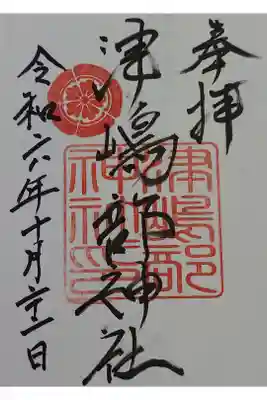 奉拝
津嶋部神社
津嶋部神社印
令和六年十月二十一日